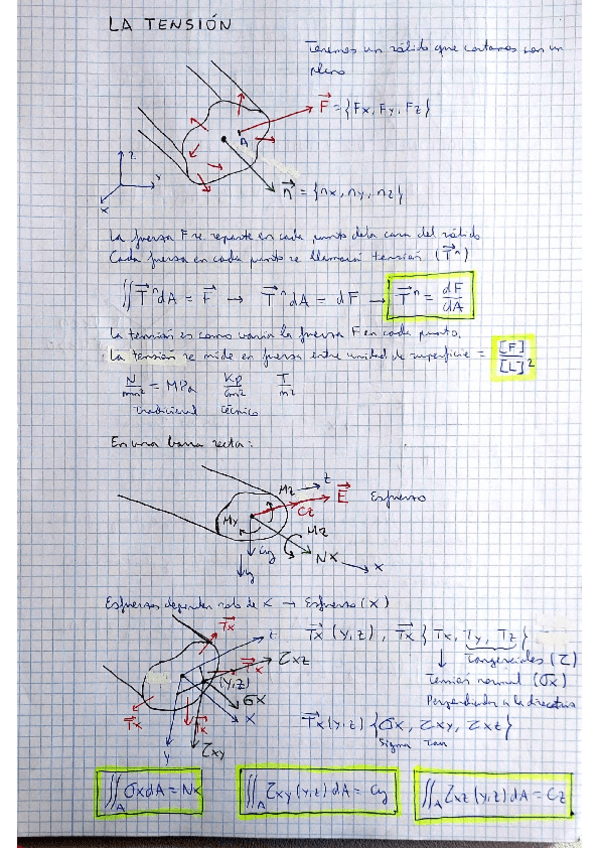 LA TENSIÓN
Tenemos un sólido que cortamos con un
plano
F⃗ = {Fx, Fy, Fz}
A
z
y
x
n⃗ = {nx, ny, nz}
La fuerza F se reparte en cada punto de la cara del sólido
Cada fuerza en cada punto se llamará tensión (T⃗ⁿ)
∬ T⃗ⁿ dA = F⃗ → T⃗ⁿ dA = dF → T⃗ⁿ = dF/dA
La tensión es como varía la fuerza F en cada punto.
La tensión se mide en fuerza entre unidad de superficie = [F]/[L]²
N/mm² = MPa Kp/cm² T/m²
tradicional técnico
En una barra recta:
Mz z
E⃗ Esfuerzo
Cz
My
Cy
Nx
x
y
Esfuerzos depende solo de x → Esfuerzo (x)
T⃗x z
T⃗x (y,z), T⃗x {Tx, Ty, Tz}
tangenciales (τ)
Tensión normal (σx)
Perpendicular a la directriz
τxz
T⃗x
(y,z)
σx
x
T⃗x
T⃗x
y
τxy
T⃗x (y,z) {σx, τxy, τxz}
Sigma Tau
∬A σx dA = Nx
∬A τxy (y,z) dA = Cy
∬A τxz (y,z) dA = Cz